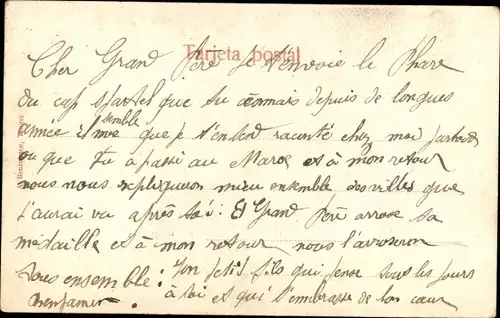 Tarjeta postal
Cher Grand Père je t'envoie le Phare
du cap Spartel que tu connais depuis de longues
année il me semble que je t'entend raconté chez moi partout
ou que tu a passé au Maroc et à mon retour
nous nous expliqueron mieu ensemble des villes que
j'aurai vu après toi : Et Grand Père arrose sa
médaille et à mon retour nous l'arroseron
tous ensemble : Ton petit fils qui pense tous les jours
à toi et qui t'embrasse de bon cœur
Benjamin.